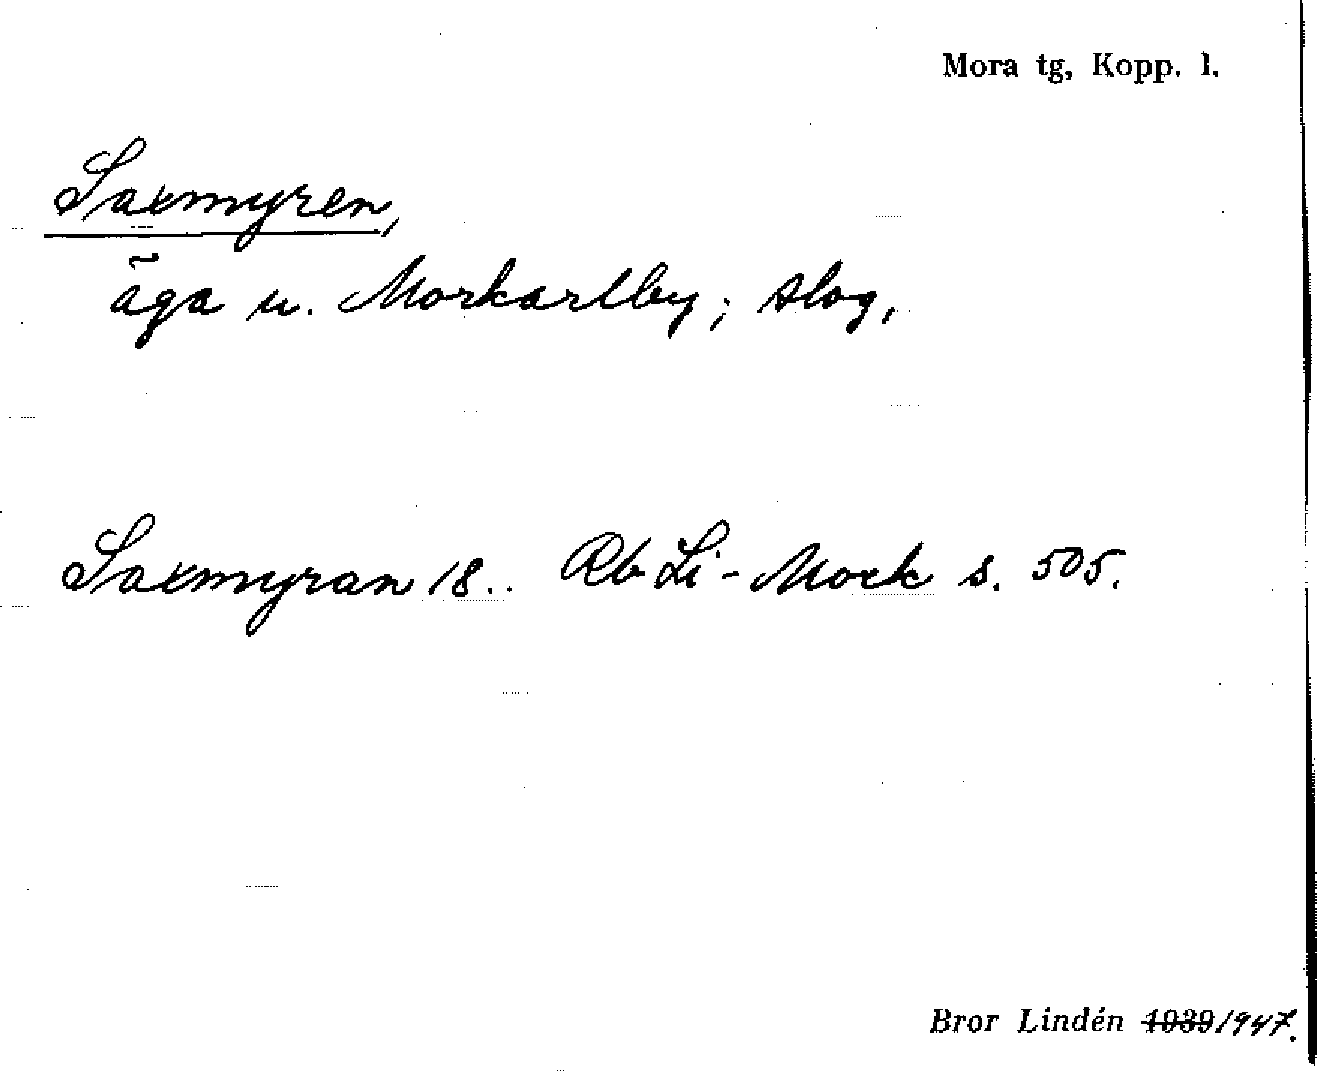 Mora tg, Kopp. l.
Saxmyren,
äga u. Morkarlby; slog,
Saxmyran 18.. Rb Li-Mock s. 505.
Bror Lindén 1939/947.